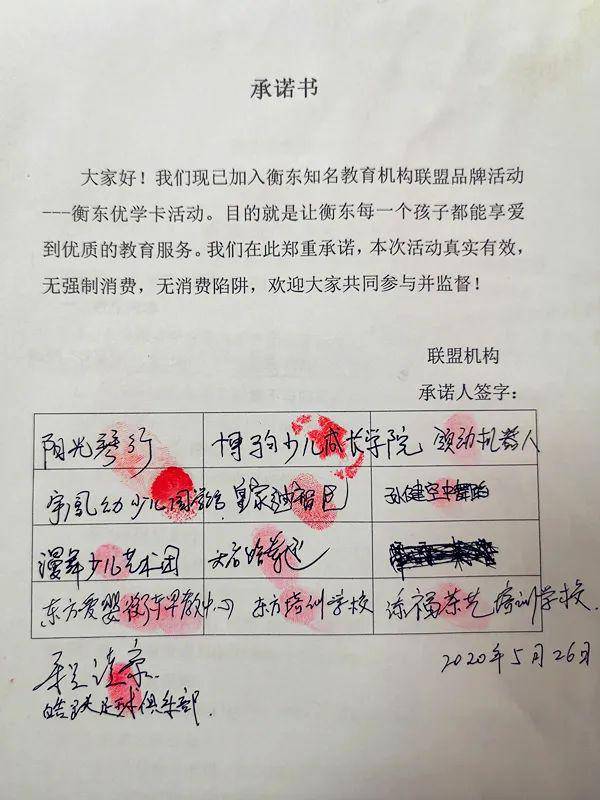 承诺书
大家好！我们现已加入衡东知名教育机构联盟品牌活动
---衡东优学卡活动。目的就是让衡东每一个孩子都能享爱
到优质的教育服务。我们在此郑重承诺，本次活动真实有效，
无强制消费，无消费陷阱，欢迎大家共同参与并监督！
联盟机构
承诺人签字：
阳光琴行 博 少儿成长学院 颂动机器人
少儿国学馆 皇家迪智尼
漫舞少儿艺术团
东方爱婴衡东早教中心 东方培训学校 添福茶艺培训学校
2020年5月26日
足球俱乐部